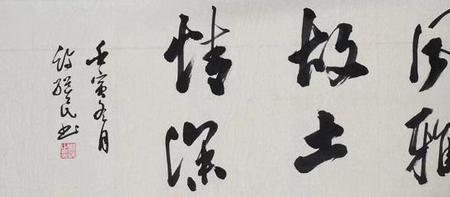 风雅
故土
情深
壬寅冬月
民书